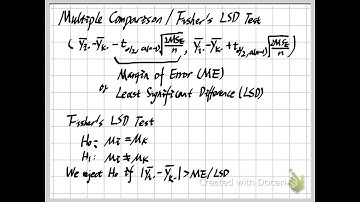 Multiple Comparison / Fisher's LSD Test
( ȳᵢ. - ȳₖ. - t_{α/2, a(n-1)} √(2MS_E/n) , ȳᵢ. - ȳₖ. + t_{α/2, a(n-1)} √(2MS_E/n) )
Margin of Error (ME)
or Least Significant Difference (LSD)
Fisher's LSD Test
H₀: μᵢ = μₖ
H₁: μᵢ ≠ μₖ
We reject H₀ if |ȳᵢ. - ȳₖ.| > ME/LSD
Created with Doceri